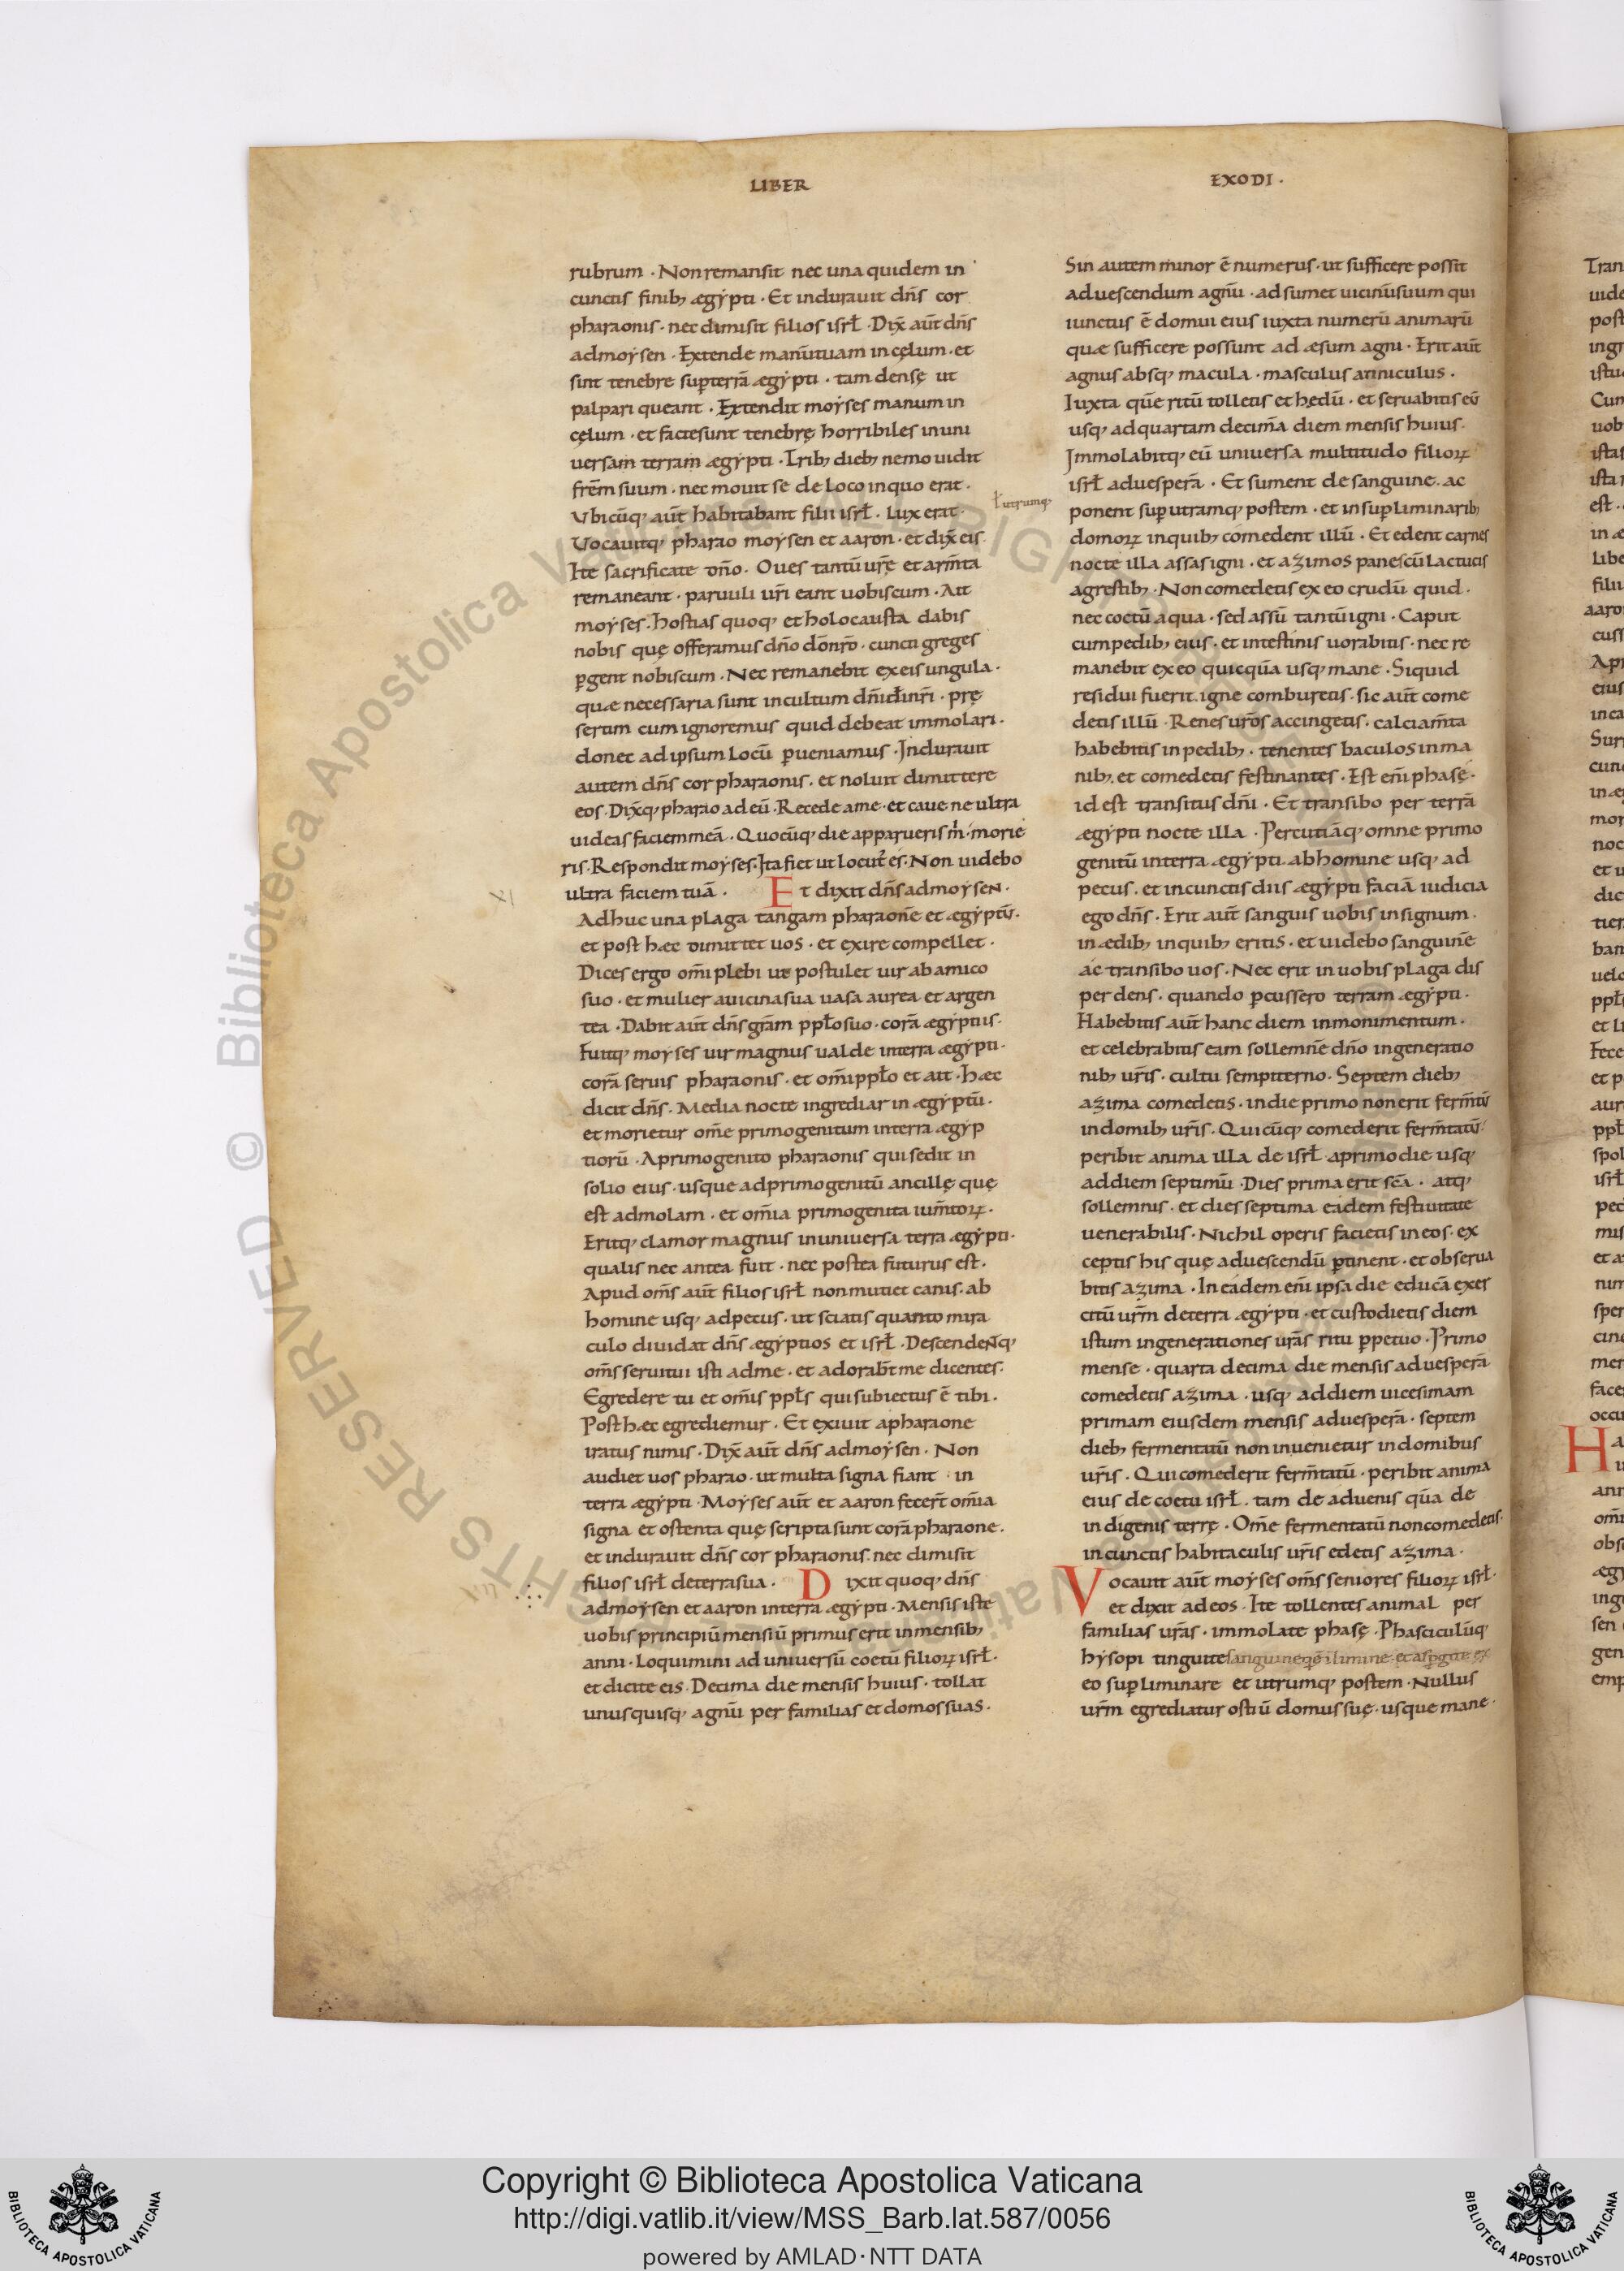 LIBER
EXODI ·
rubrum · Non remansit nec una quidem in
cunctis finib; ægypti · Et indurauit dn̄s cor
pharaonis · nec dimisit filios isrł · Dix̄ aūt dn̄s
ad moysen · Extende manū tuam in cęlum · et
sint tenebre sup terrā ægypti · tam densę ut
palpari queant · Extendit moyses manum in
cęlum · et facte sunt tenebrę horribiles in uni
uersam terram ægypti · Trib; dieb; nemo uidit
frēm suum · nec mouit se de loco in quo erat ·
Vbicūq; aūt habitabant filii isrł · lux erat ·
Vocauitq; pharao moysen et aaron · et dix̄ eis
Ite sacrificate dn̄o · Oues tantū ur̄ę et arm̄ta
remaneant · paruuli ur̄i eant uobiscum · Ait
moyses · hostias quoq; et holocausta dabis
nobis quę offeramus dn̄o dō nr̄o · cuncti greges
ꝑgent nobiscum · Nec remanebit ex eis ungula ·
quæ necessaria sunt in cultum dn̄i di nr̄i · prę
sertim cum ignoremus quid debeat immolari ·
donec ad ipsum locū ꝑueniamus · Indurauit
autem dn̄s cor pharaonis · et noluit dimittere
eos · Dix̄q; pharao ad eū · Recede a me · et caue ne ultra
uideas faciem meā · Quocūq; die apparueris m̄ · morie
ris · Respondit moyses · Ita fiet ut locut' es · Non uidebo
ultra faciem tuā · Et dixit dn̄s ad moysen ·
XI
Adhuc una plaga tangam pharaonē et ægyptū ·
et post hæc dimittet uos · et exire compellet ·
Dices ergo om̄i plebi ut postulet uir ab amico
suo · et mulier a uicina sua uasa aurea et argen
tea · Dabit aūt dn̄s grām ppło suo · corā ægyptiis ·
Fuitq; moyses uir magnus ualde in terra ægypti ·
corā seruis pharaonis · et om̄i ppło et ait · hæc
dicit dn̄s · Media nocte ingrediar in ægyptū ·
et morietur om̄e primogenitum in terra ægyp
tiorū · A primogenito pharaonis qui sedit in
solio eius · usque ad primogenitū ancillę quę
est ad molam · et om̄ia primogenita ium̄toꝝ ·
Eritq; clamor magnus in uniuersa terra ægypti ·
qualis nec antea fuit · nec postea futurus est ·
Apud om̄s aūt filios isrł non mutiet canis · ab
homine usq; ad pecus · ut sciatis quanto mira
culo diuidat dn̄s ægyptios et isrł · Descendentq;
om̄s serui tui isti ad me · et adorab̄t me dicentes ·
Egredere tu et om̄is ppłs qui subiectus ē tibi ·
Post hæc egrediemur · Et exiuit a pharaone
iratus nimis · Dix̄ aūt dn̄s ad moysen · Non
audiet uos pharao · ut multa signa fiant in
terra ægypti · Moyses aūt et aaron fecer̄t om̄ia
signa et ostenta quę scripta sunt corā pharaone ·
et indurauit dn̄s cor pharaonis · nec dimisit
filios isrł de terra sua · Dixit quoq; dn̄s
XII
ad moysen et aaron in terra ægypti · Mensis iste
uobis principiū mensiū primus erit in mensib;
anni · Loquimini ad uniuersū coetū filioꝝ isrł ·
et dicite eis · Decima die mensis huius · tollat
unusquisq; agnū per familias et domos suas ·
Sin autem minor ē numerus · ut sufficere possit
ad uescendum agnū · adsumet uicinū suum qui
iunctus ē domui eius iuxta numerū animarū
quæ sufficere possunt ad æsum agni · Erit aūt
agnus absq; macula · masculus anniculus ·
Iuxta quē ritū tolletis et hędū · et seruabitis eū
usq; ad quartam decimā diem mensis huius ·
Immolabitq; eū uniuersa multitudo filioꝝ
isrł ad uesperā · Et sument de sanguine · ac
ł utrumq;
ponent sup utramq; postem · et in sup liminarib;
domoꝝ in quib; comedent illū · Et edent carnes
nocte illa assas igni · et azimos panes cū lactucis
agrestib; · Non comedetis ex eo crudū quid ·
nec coctū aqua · sed assū tantū igni · Caput
cum pedib; eius · et intestinis uorabitis · nec re
manebit ex eo quicquā usq; mane · Si quid
residui fuerit · igne comburetis · sic aūt come
detis illū · Renes ur̄os accingetis · calciam̄ta
habebitis in pedib; · tenentes baculos in ma
nib; · et comedetis festinantes · Est eni phasę ·
id est transitus dn̄i · Et transibo per terrā
ægypti nocte illa · Percutiāq; omne primo
genitū in terra ægypti ab homine usq; ad
pecus · et in cunctis diis ægypti faciā iudicia
ego dn̄s · Erit aūt sanguis uobis in signum ·
in ædib; in quib; eritis · et uidebo sanguinē
ac transibo uos · Nec erit in uobis plaga dis
perdens · quando ꝑcussero terram ægypti ·
Habebitis aūt hanc diem in monimentum ·
et celebrabitis eam sollemnē dn̄o in generatio
nib; ur̄is · cultu sempiterno · Septem dieb;
azima comedetis · in die primo non erit ferm̄tū
in domib; ur̄is · Quicūq; comederit ferm̄tatū ·
peribit anima illa de isrł · a primo die usq;
ad diem septimū · Dies prima erit sc̄a · atq;
sollemnis · et dies septima eadem festiuitate
uenerabilis · Nichil operis facietis in eos · ex
ceptis his quę ad uescendū ꝑtinent · et obserua
bitis azima · In eadem eni ipsa die educā exer
citū ur̄m de terra ægypti · et custodietis diem
istum in generationes ur̄as ritu ꝑpetuo · Primo
mense · quarta decima die mensis ad uesperā
comedetis azima · usq; ad diem uicesimam
primam eiusdem mensis ad uesperā · septem
dieb; fermentatū non inuenietur in domibus
ur̄is · Qui comederit ferm̄tatū · peribit anima
eius de coetu isrł · tam de aduenis quā de
indigenis terrę · Om̄e fermentatū non comedetis ·
in cunctis habitaculis ur̄is edetis azima ·
Vocauit aūt moyses om̄s seniores filioꝝ isrł ·
et dixit ad eos · Ite tollentes animal per
familias ur̄as · immolate phasę · Phasciculūq;
hysopi tinguite sanguine q ē i limine · et aspgite ex
eo sup liminare et utrumq; postem · Nullus
ur̄m egrediatur ostiū domus suę · usque mane ·
Copyright © Biblioteca Apostolica Vaticana
http://digi.vatlib.it/view/MSS_Barb.lat.587/0056
powered by AMLAD·NTT DATA
BIBLIOTECA APOSTOLICA VATICANA
BIBLIOTECA APOSTOLICA VATICANA